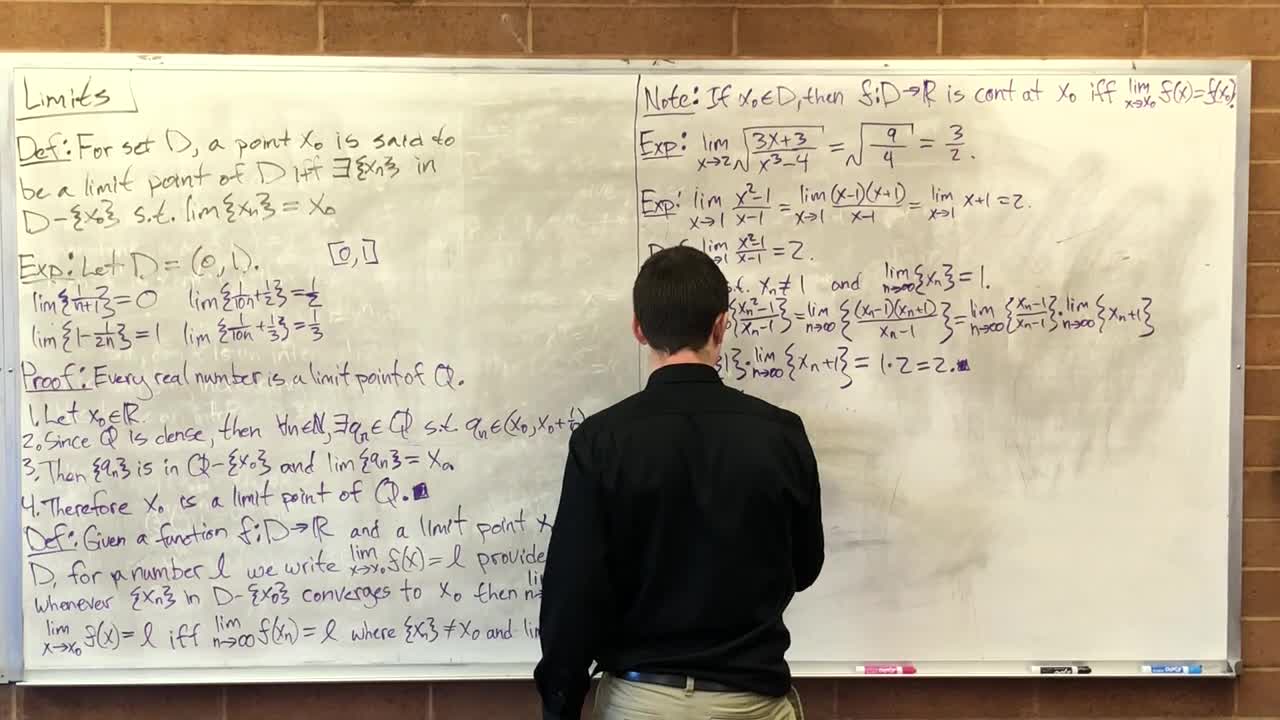 Limits
Def: For set D, a point x₀ is said to
be a limit point of D iff ∃{xₙ} in
D-{x₀} s.t. lim{xₙ} = x₀
Exp: Let D = (0,1). [0,1]
lim{1/(n+1)}=0 lim{1/(10n)+1/2}=1/2
lim{1-1/(2n)}=1 lim{1/(10n)+1/3}=1/3
Proof: Every real number is a limit point of Q.
1. Let x₀∈R.
2. Since Q is dense, then ∀n∈N, ∃qₙ∈Q s.t. qₙ∈(x₀, x₀+1/n)
3. Then {qₙ} is in Q-{x₀} and lim{qₙ} = x₀
4. Therefore x₀ is a limit point of Q. ■
Def: Given a function f:D→R and a limit point x
D, for a number l we write lim x→x₀ f(x)=l provide
whenever {xₙ} in D-{x₀} converges to x₀ then lim n→
lim x→x₀ f(x)=l iff lim n→∞ f(xₙ)=l where {xₙ}≠x₀ and lim
Note: If x₀∈D, then f:D→R is cont at x₀ iff lim x→x₀ f(x)=f(x₀).
Exp: lim x→2 √((3x+3)/(x³-4)) = √(9/4) = 3/2.
Exp: lim x→1 (x²-1)/(x-1) = lim x→1 (x-1)(x+1)/(x-1) = lim x→1 x+1=2.
lim x→1 (x²-1)/(x-1) = 2.
s.t. xₙ≠1 and lim n→∞ {xₙ}=1.
{(xₙ²-1)/(xₙ-1)} = lim n→∞ {(xₙ-1)(xₙ+1)/(xₙ-1)} = lim n→∞ {(xₙ-1)/(xₙ-1)}·lim n→∞ {xₙ+1}
{1}·lim n→∞ {xₙ+1} = 1·2=2. ■
EXPO